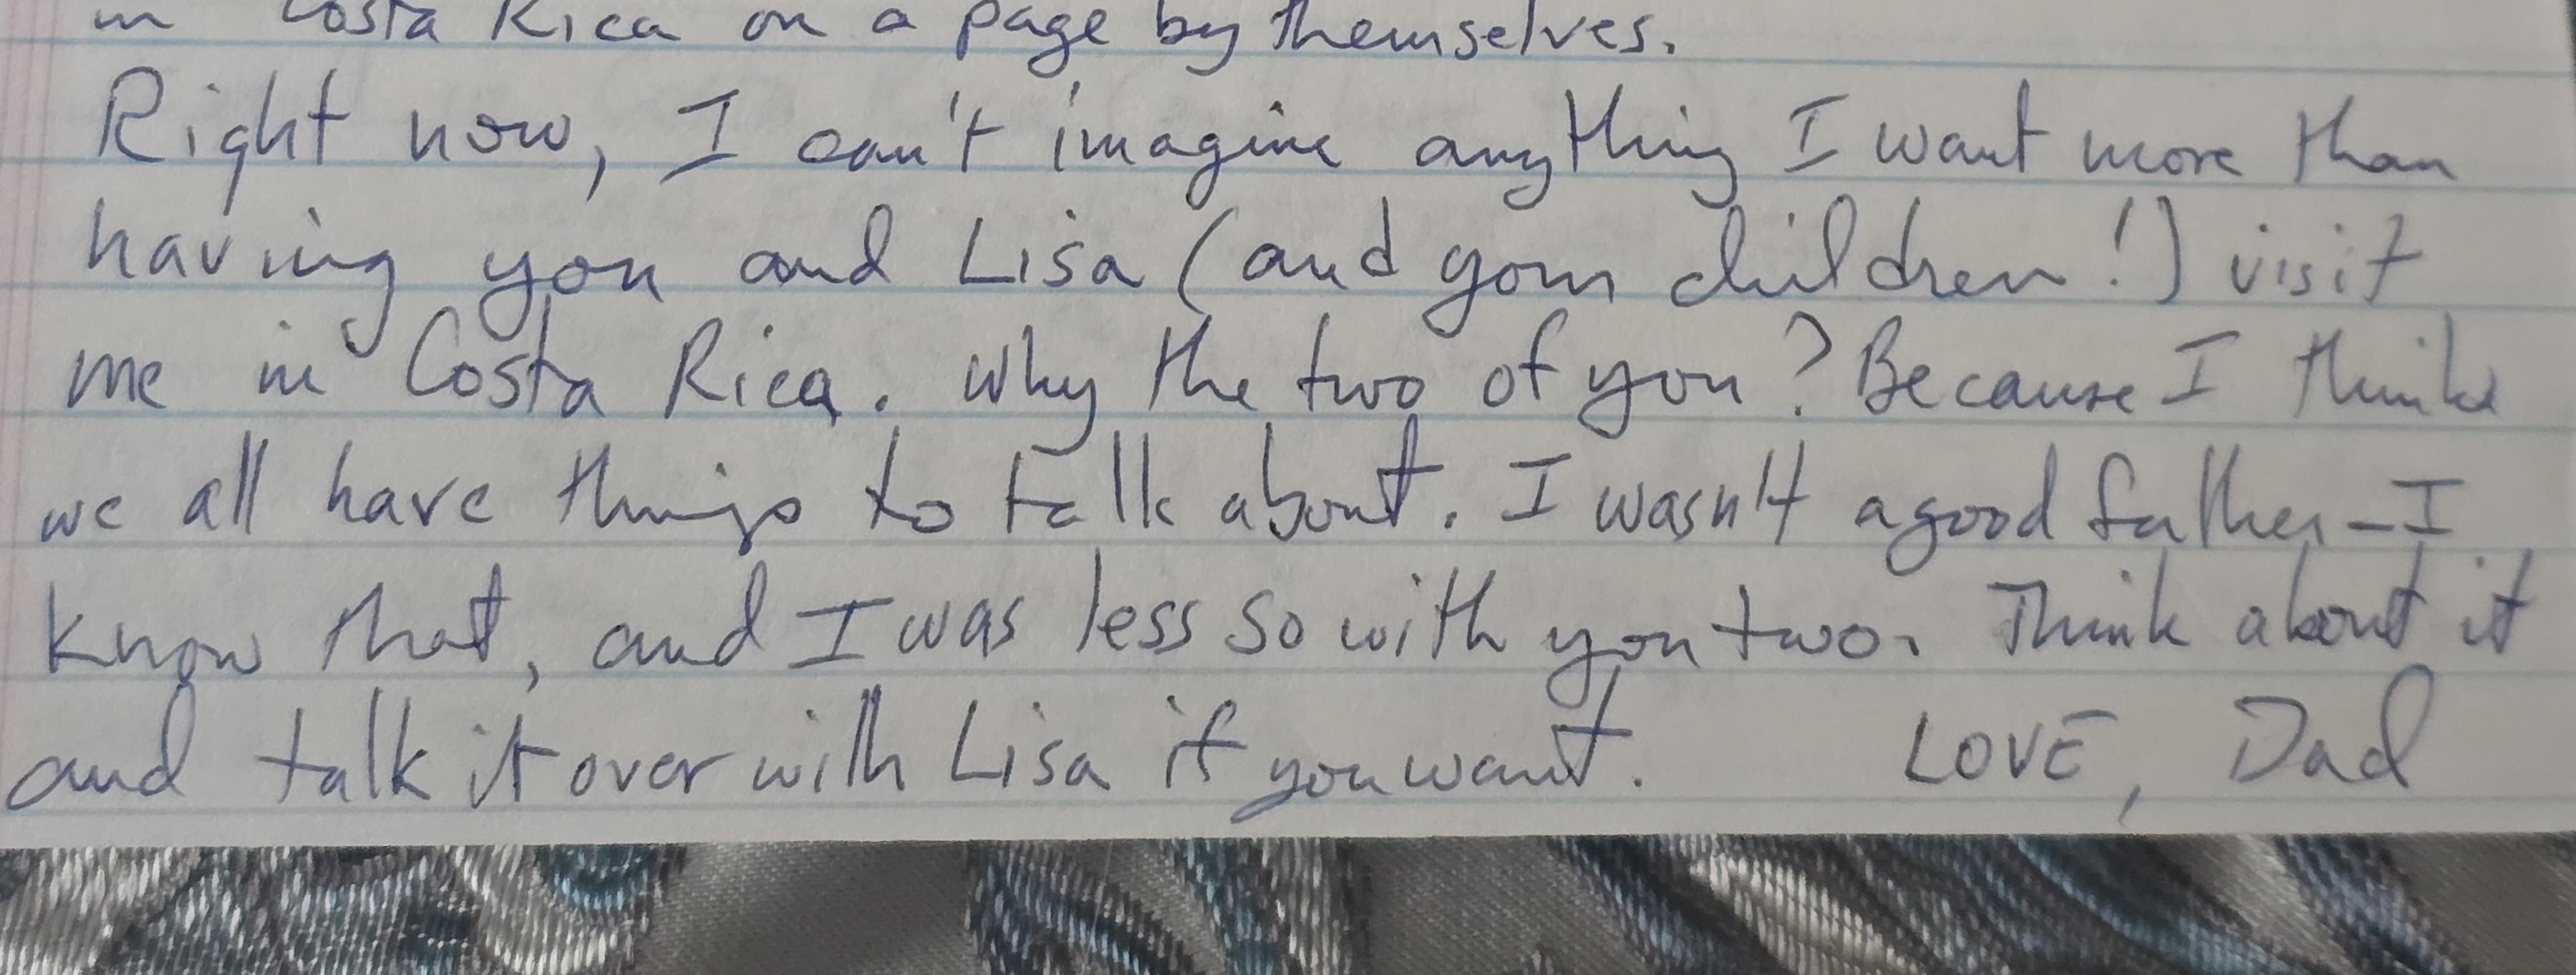 in Costa Rica on a page by themselves.
Right now, I can't imagine anything I want more than
having you and Lisa (and your children!) visit
me in Costa Rica. Why the two of you? Because I think
we all have things to talk about. I wasn't a good father – I
know that, and I was less so with you two. Think about it
and talk it over with Lisa if you want. LOVE, Dad